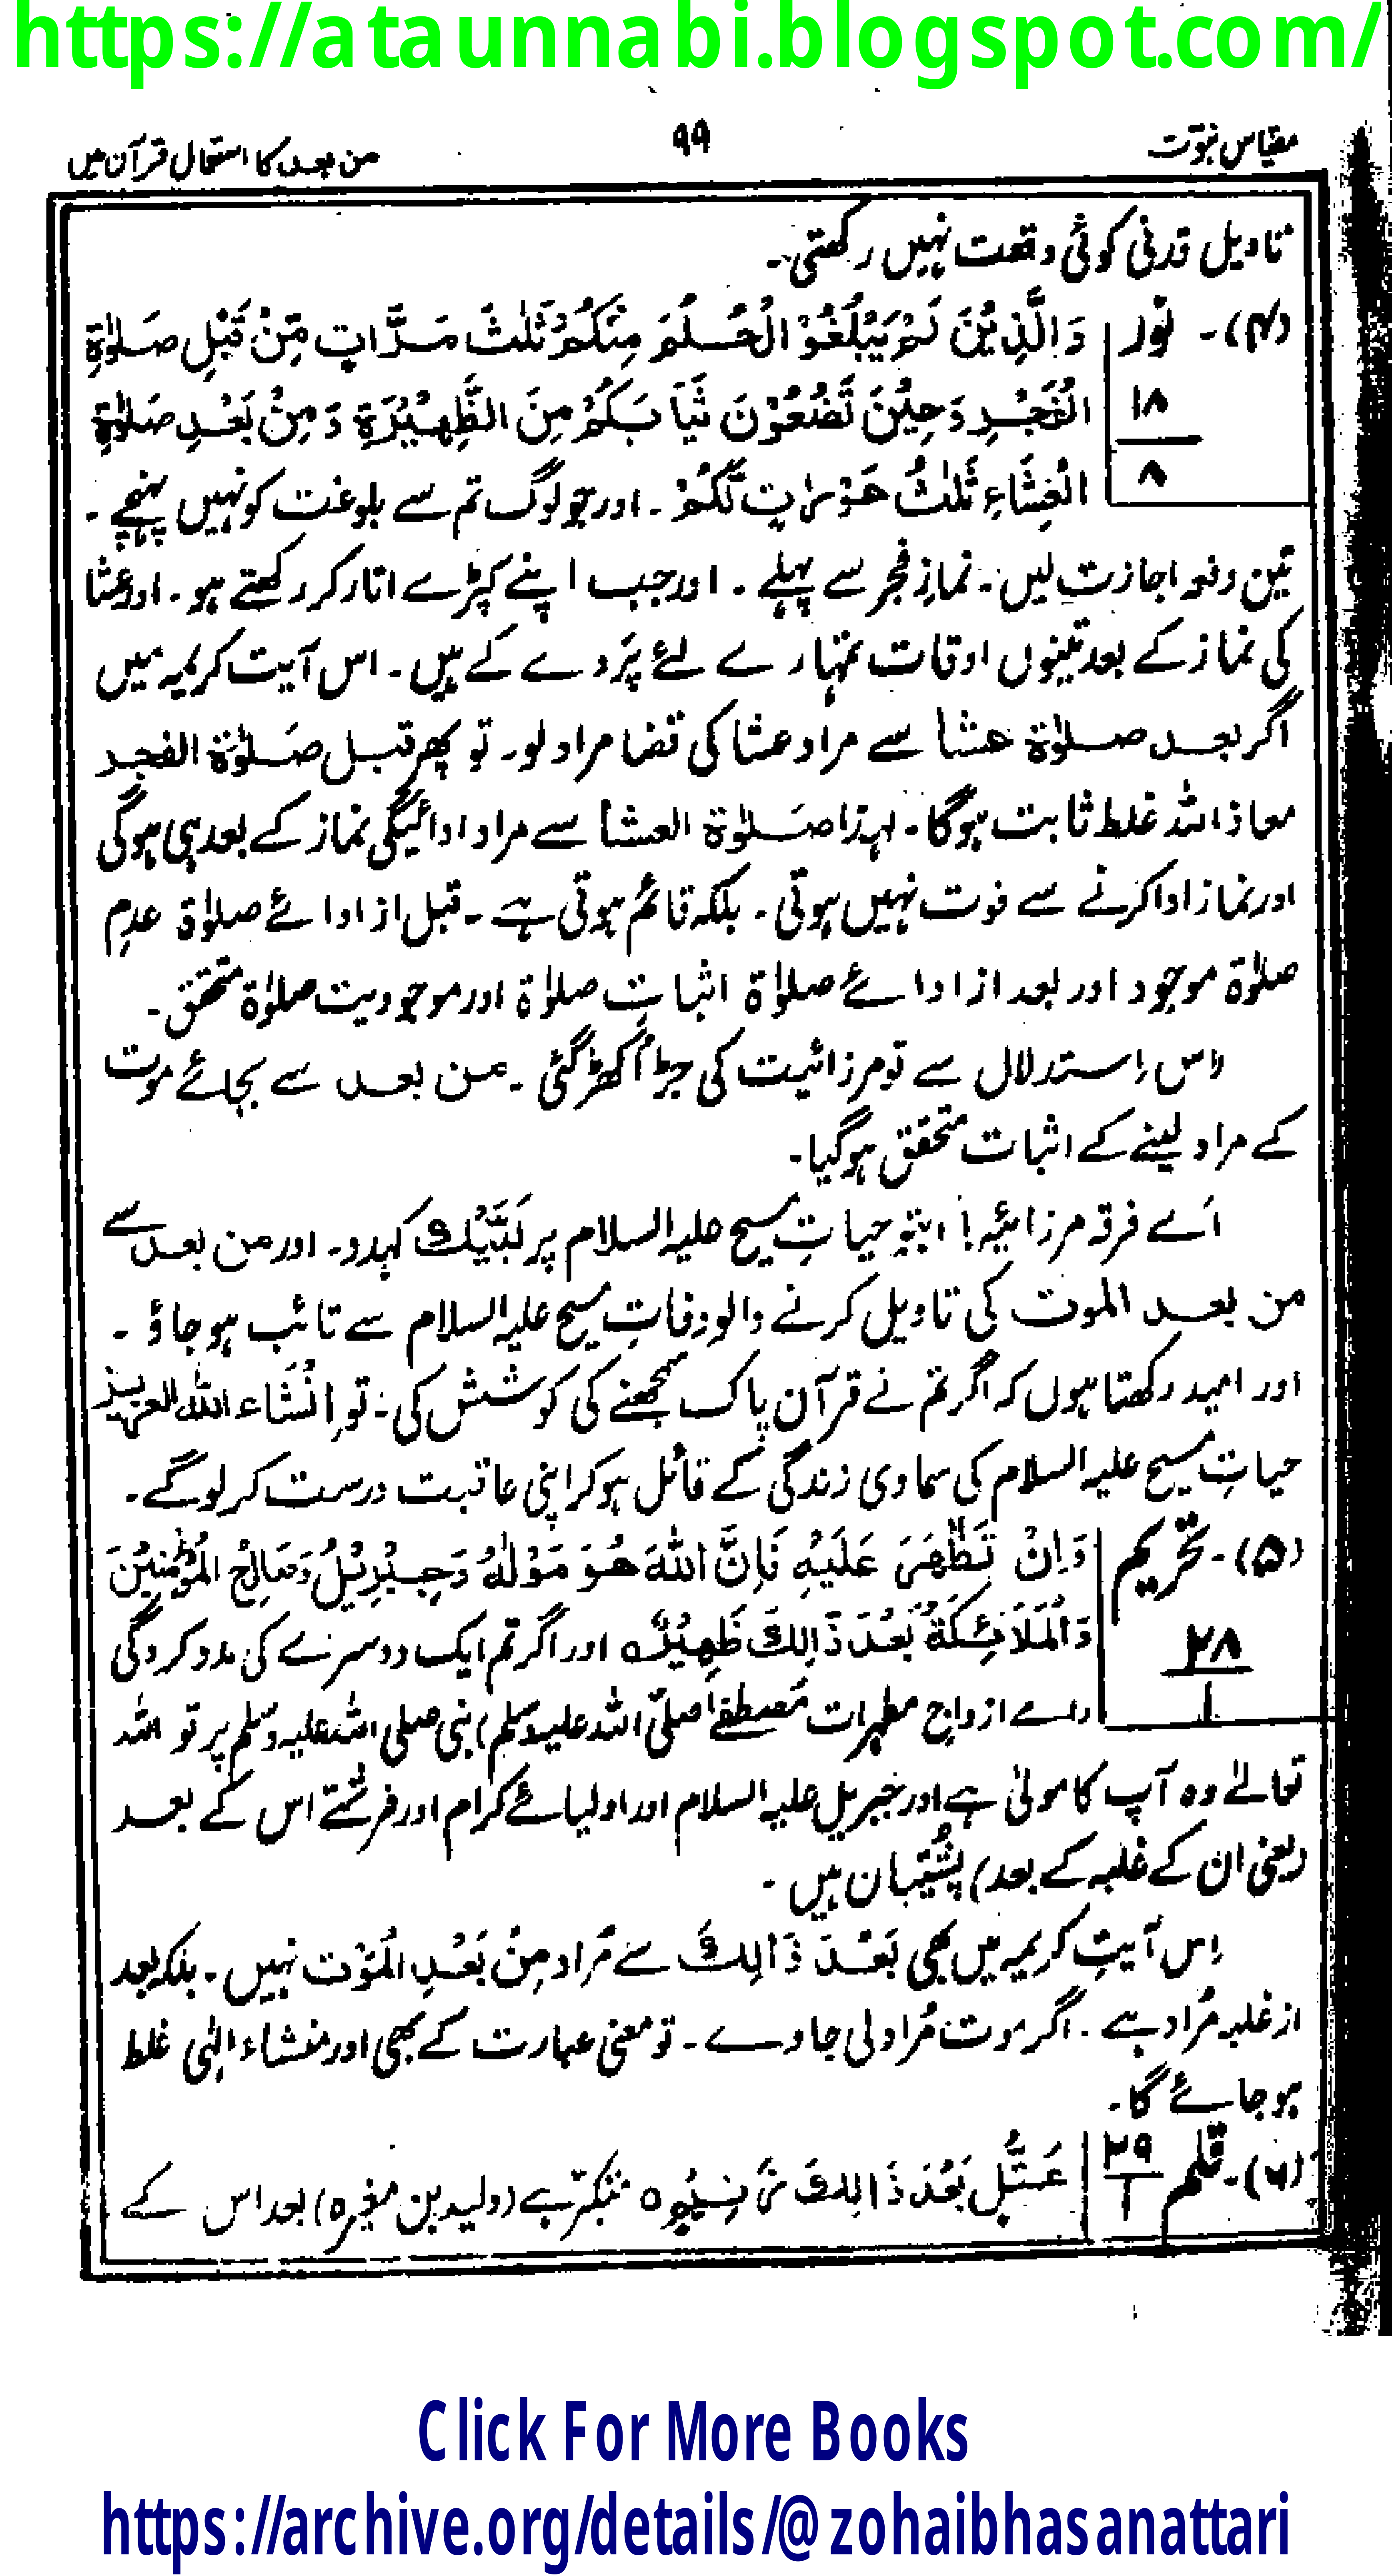 https://ataunnabi.blogspot.com/
مقیاس نبوّت
۹۹
من بعد کا استعمال قرآن میں
تاویل قدنی کوئی وقعت نہیں رکھتی۔
(۴)۔ نور ۱۸/۸
وَالَّذِیْنَ لَمْ یَبْلُغُوْ الْحُلُمَ مِنْکُمْ ثَلٰثَ مَرَّاتٍ مِّنْ قَبْلِ صَلٰوةِ
الْفَجْرِ وَحِیْنَ تَضَعُوْنَ ثِیَابَکُمْ مِنَ الظَّهِیْرَةِ وَمِنْ بَعْدِ صَلٰوةِ
الْعِشَاءِ ثَلٰثُ عَوْرٰتٍ لَّکُمْ ۔ اور جو لوگ تم سے بلوغت کو نہیں پہنچے ۔
تین دفعہ اجازت لیں۔ نمازِ فجر سے پہلے ۔ اور جب اپنے کپڑے اتار کر رکھتے ہو ۔ اور عشا
کی نماز کے بعد تینوں اوقات تمہارے لئے پَردے کے ہیں۔ اس آیت کریمہ میں
اگر بعد صلوٰة عشا سے مراد عشا کی قضا مراد لو۔ تو پھر قبل صَلوٰة الفجر
معاذ اللہ غلط ثابت ہوگا۔ لہذا صَلوٰة العشا سے مراد ادائیگی نماز کے بعد ہی ہوگی
اور نماز ادا کرنے سے فوت نہیں ہوتی ۔ بلکہ قائم ہوتی ہے ۔ قبل از ادائے صلوٰة عدمِ
صلوٰة موجود اور بعد از ادائے صلوٰة اثباتِ صلوٰة اور موجودیت صلوٰة متحقق۔
اِس اِستدلال سے تو مرزائیت کی جڑ اُکھڑ گئی ۔ من بعد سے بجائے موت
کے مراد لینے کے اثبات متحقق ہوگیا۔
اَے فرقہ مرزائیہ! اب تو حیاتِ مسیح علیہ السلام پر لَبَّیْک کہدو۔ اور من بعد سے
من بعد الموت کی تاویل کرنے والو وفاتِ مسیح علیہ السلام سے تائب ہوجاؤ ۔
اور امید رکھتا ہوں کہ اگر تم نے قرآن پاک سمجھنے کی کوشش کی ۔ تو اِنْشَاء اللہ العزیز
حیاتِ مسیح علیہ السلام کی سماوی زندگی کے قائل ہو کر اپنی عاقبت درست کر لوگے ۔
(۵)۔ تحریم ۲۸/۱
وَاِنْ تَظٰهَرَ عَلَیْهِ فَاِنَّ اللّٰهَ هُوَ مَوْلٰهُ وَجِبْرِیْلُ وَصَالِحُ الْمُؤْمِنِیْنَ
وَالْمَلَائِکَةُ بَعْدَ ذَالِكَ ظَهِیْرٌ ہ اور اگر تم ایک دوسرے کی مدد کروگی
(اے ازواج مطہرات مُصطفےٰ صلی اللہ علیہ وسلم) نبی صلی اللہ علیہ وسلم پر تو اللہ
تعالےٰ وہ آپ کا مولیٰ ہے اور جبریل علیہ السلام اور اولیائے کرام اور فرشتے اس کے بعد
(یعنی ان کے غلبہ کے بعد) پُشتیبان ہیں ۔
اِس آیتِ کریمہ میں بھی بَعْدَ ذَالِكَ سے مُراد مِنْ بَعْدِ الْمَوْت نہیں ۔ بلکہ بعد
از غلبہ مُراد ہے ۔ اگر موت مُراد لی جاوے ۔ تو معنی عبارت کے بھی اور منشاء الٰہی غلط
ہوجائے گا ۔
(۶)۔ قلم ۲۹/۱
عُتُلٍّ بَعْدَ ذَالِكَ زَنِیْمٍ ہ متکبّر ہے (ولید بن مغیرہ) بعد اس کے
Click For More Books
https://archive.org/details/@zohaibhasanattari